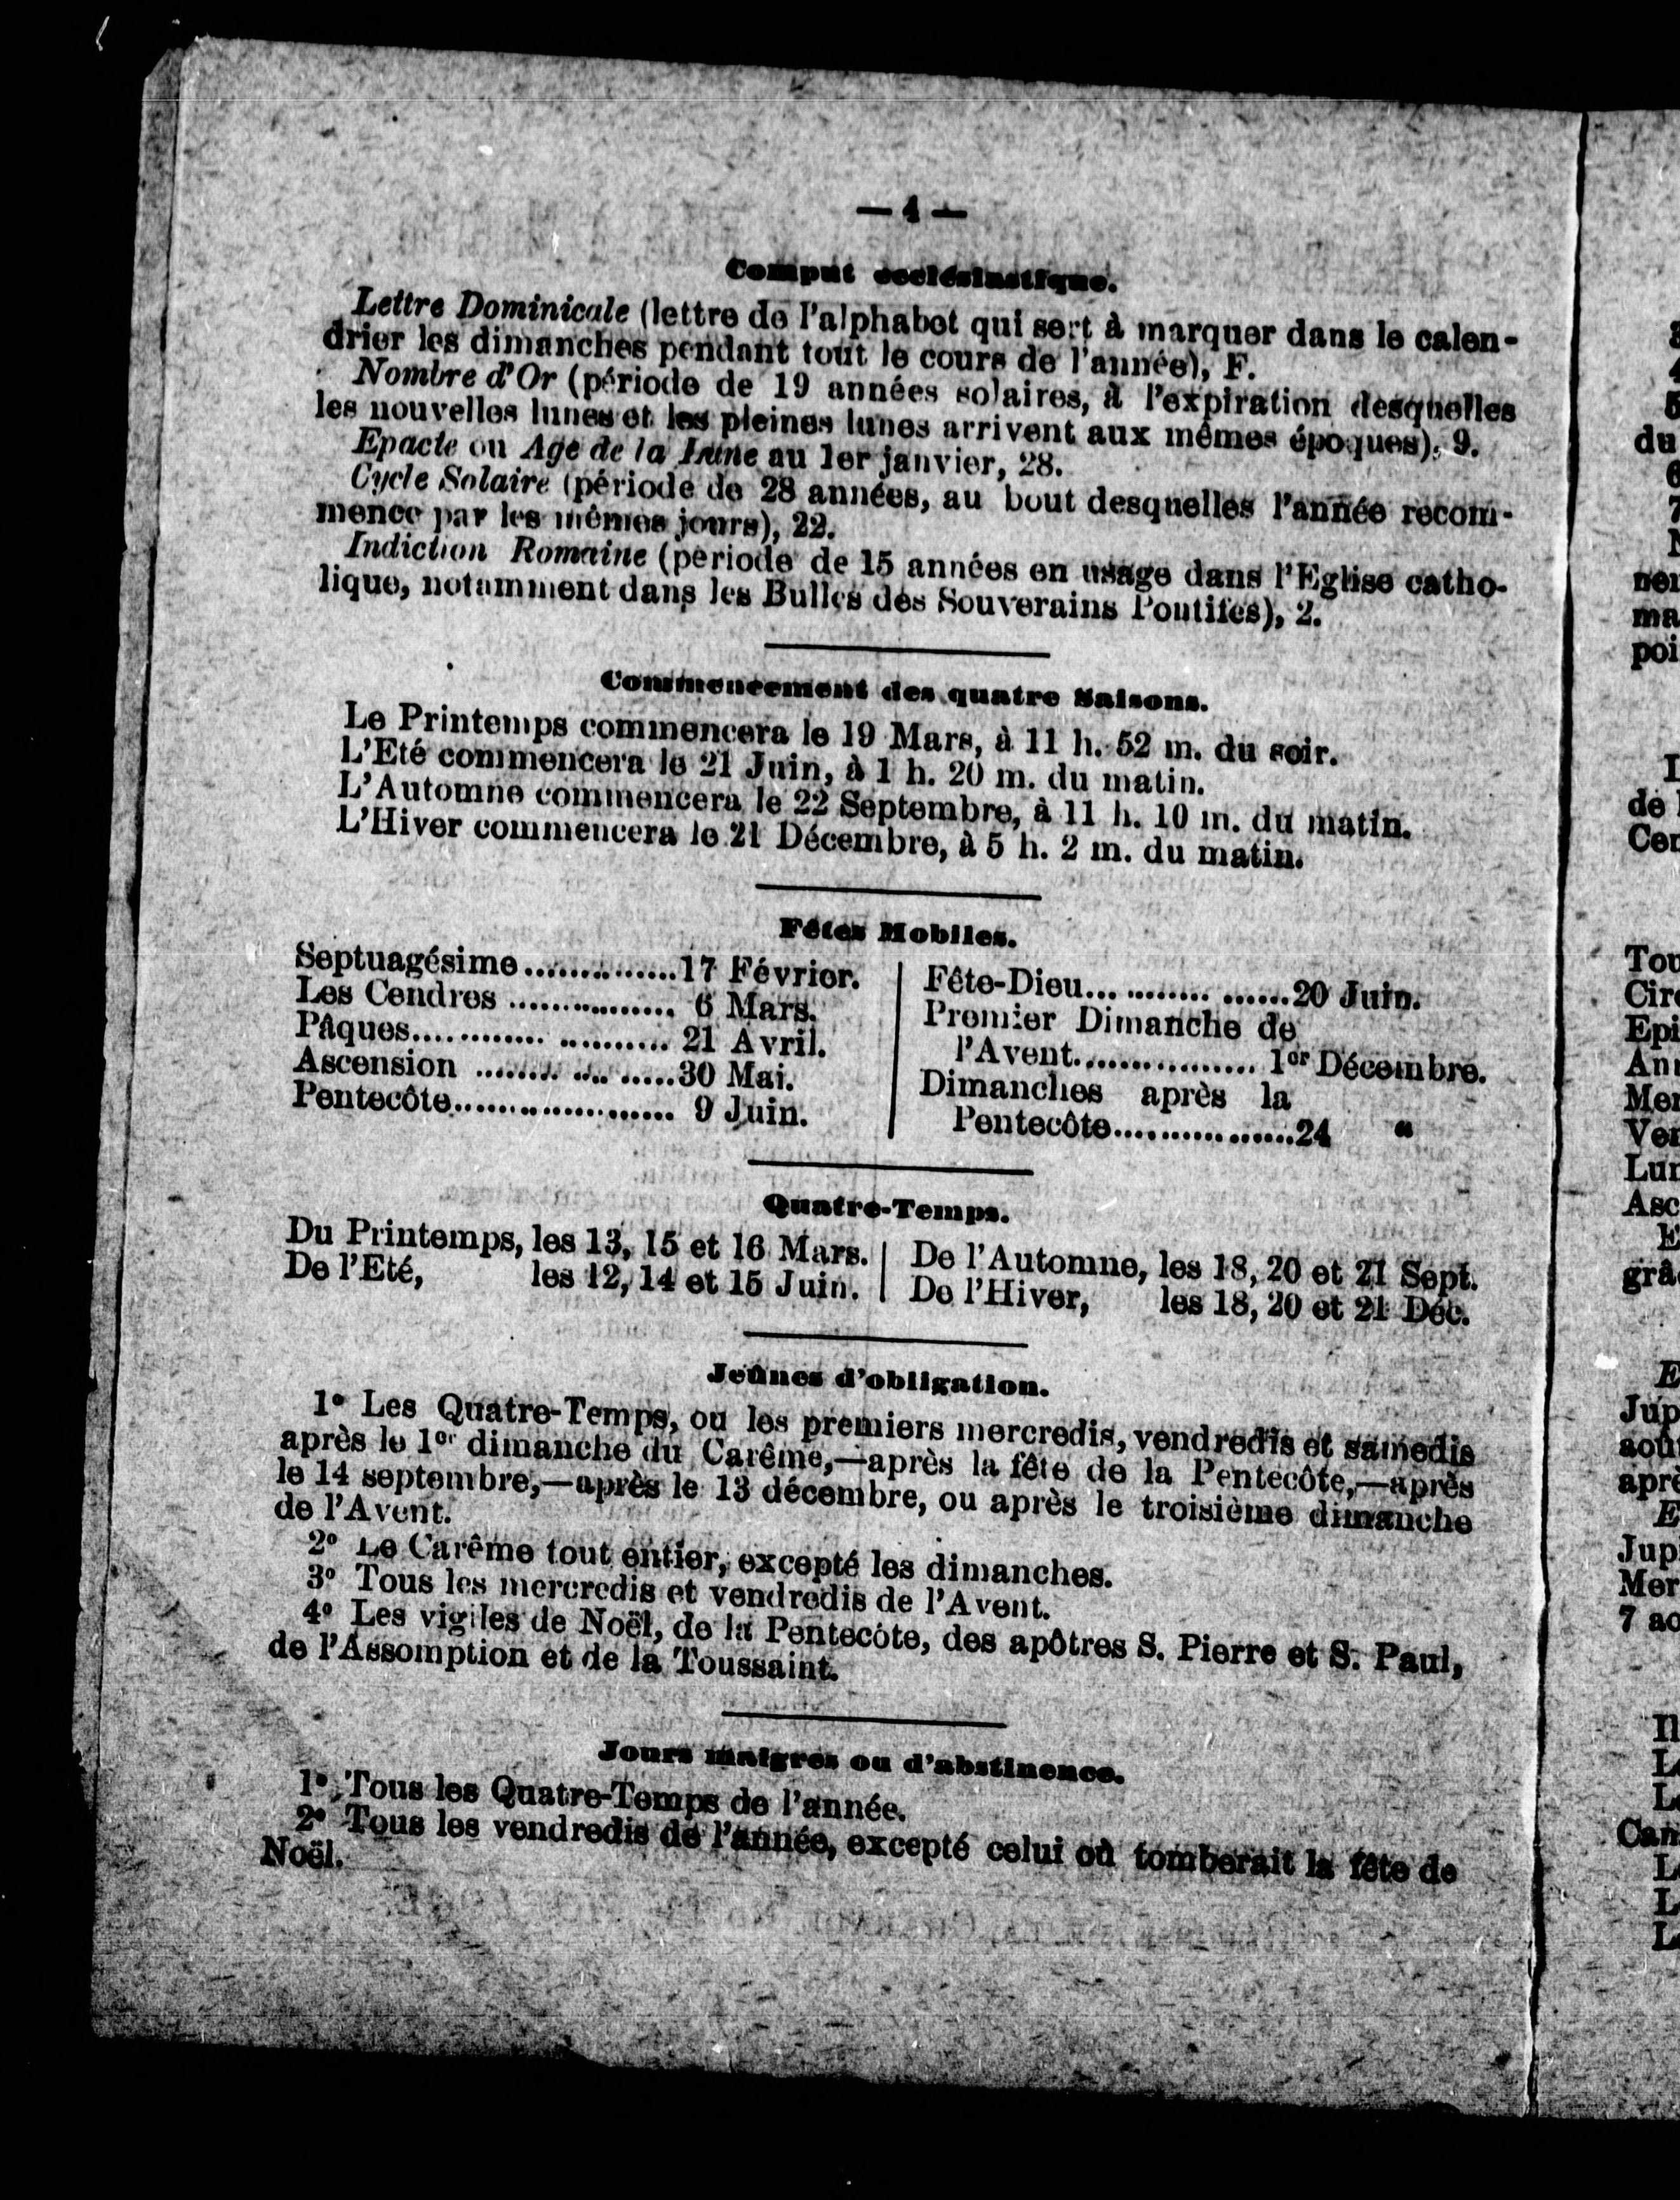 — 4 —
Comput ecclésiastique.
Lettre Dominicale (lettre de l'alphabet qui sert à marquer dans le calen-
drier les dimanches pendant tout le cours de l'année), F.
Nombre d'Or (période de 19 années solaires, à l'expiration desquelles
les nouvelles lunes et les pleines lunes arrivent aux mêmes époques), 9.
Epacte ou Age de la Lune au 1er janvier, 28.
Cycle Solaire (période de 28 années, au bout desquelles l'année recom-
mence par les mêmes jours), 22.
Indiction Romaine (période de 15 années en usage dans l'Eglise catho-
lique, notamment dans les Bulles des Souverains Pontifes), 2.
Commencement des quatre Saisons.
Le Printemps commencera le 19 Mars, à 11 h. 52 m. du soir.
L'Eté commencera le 21 Juin, à 1 h. 20 m. du matin.
L'Automne commencera le 22 Septembre, à 11 h. 10 m. du matin.
L'Hiver commencera le 21 Décembre, à 5 h. 2 m. du matin.
Fêtes Mobiles.
Septuagésime...............17 Février.
Les Cendres ................ 6 Mars.
Pâques............. .......... 21 Avril.
Ascension ........ .... ......30 Mai.
Pentecôte..................... 9 Juin.
Fête-Dieu... ......... ......20 Juin.
Premier Dimanche de
l'Avent................. 1er Décembre.
Dimanches après la
Pentecôte.................24 "
Quatre-Temps.
Du Printemps, les 13, 15 et 16 Mars.
De l'Eté, les 12, 14 et 15 Juin.
De l'Automne, les 18, 20 et 21 Sept.
De l'Hiver, les 18, 20 et 21 Déc.
Jeûnes d'obligation.
1° Les Quatre-Temps, ou les premiers mercredis, vendredis et samedis
après le 1er dimanche du Carême,—après la fête de la Pentecôte,—après
le 14 septembre,—après le 13 décembre, ou après le troisième dimanche
de l'Avent.
2° Le Carême tout entier, excepté les dimanches.
3° Tous les mercredis et vendredis de l'Avent.
4° Les vigiles de Noël, de la Pentecôte, des apôtres S. Pierre et S. Paul,
de l'Assomption et de la Toussaint.
Jours maigres ou d'abstinence.
1° Tous les Quatre-Temps de l'année.
2° Tous les vendredis de l'année, excepté celui où tomberait la fête de
Noël.